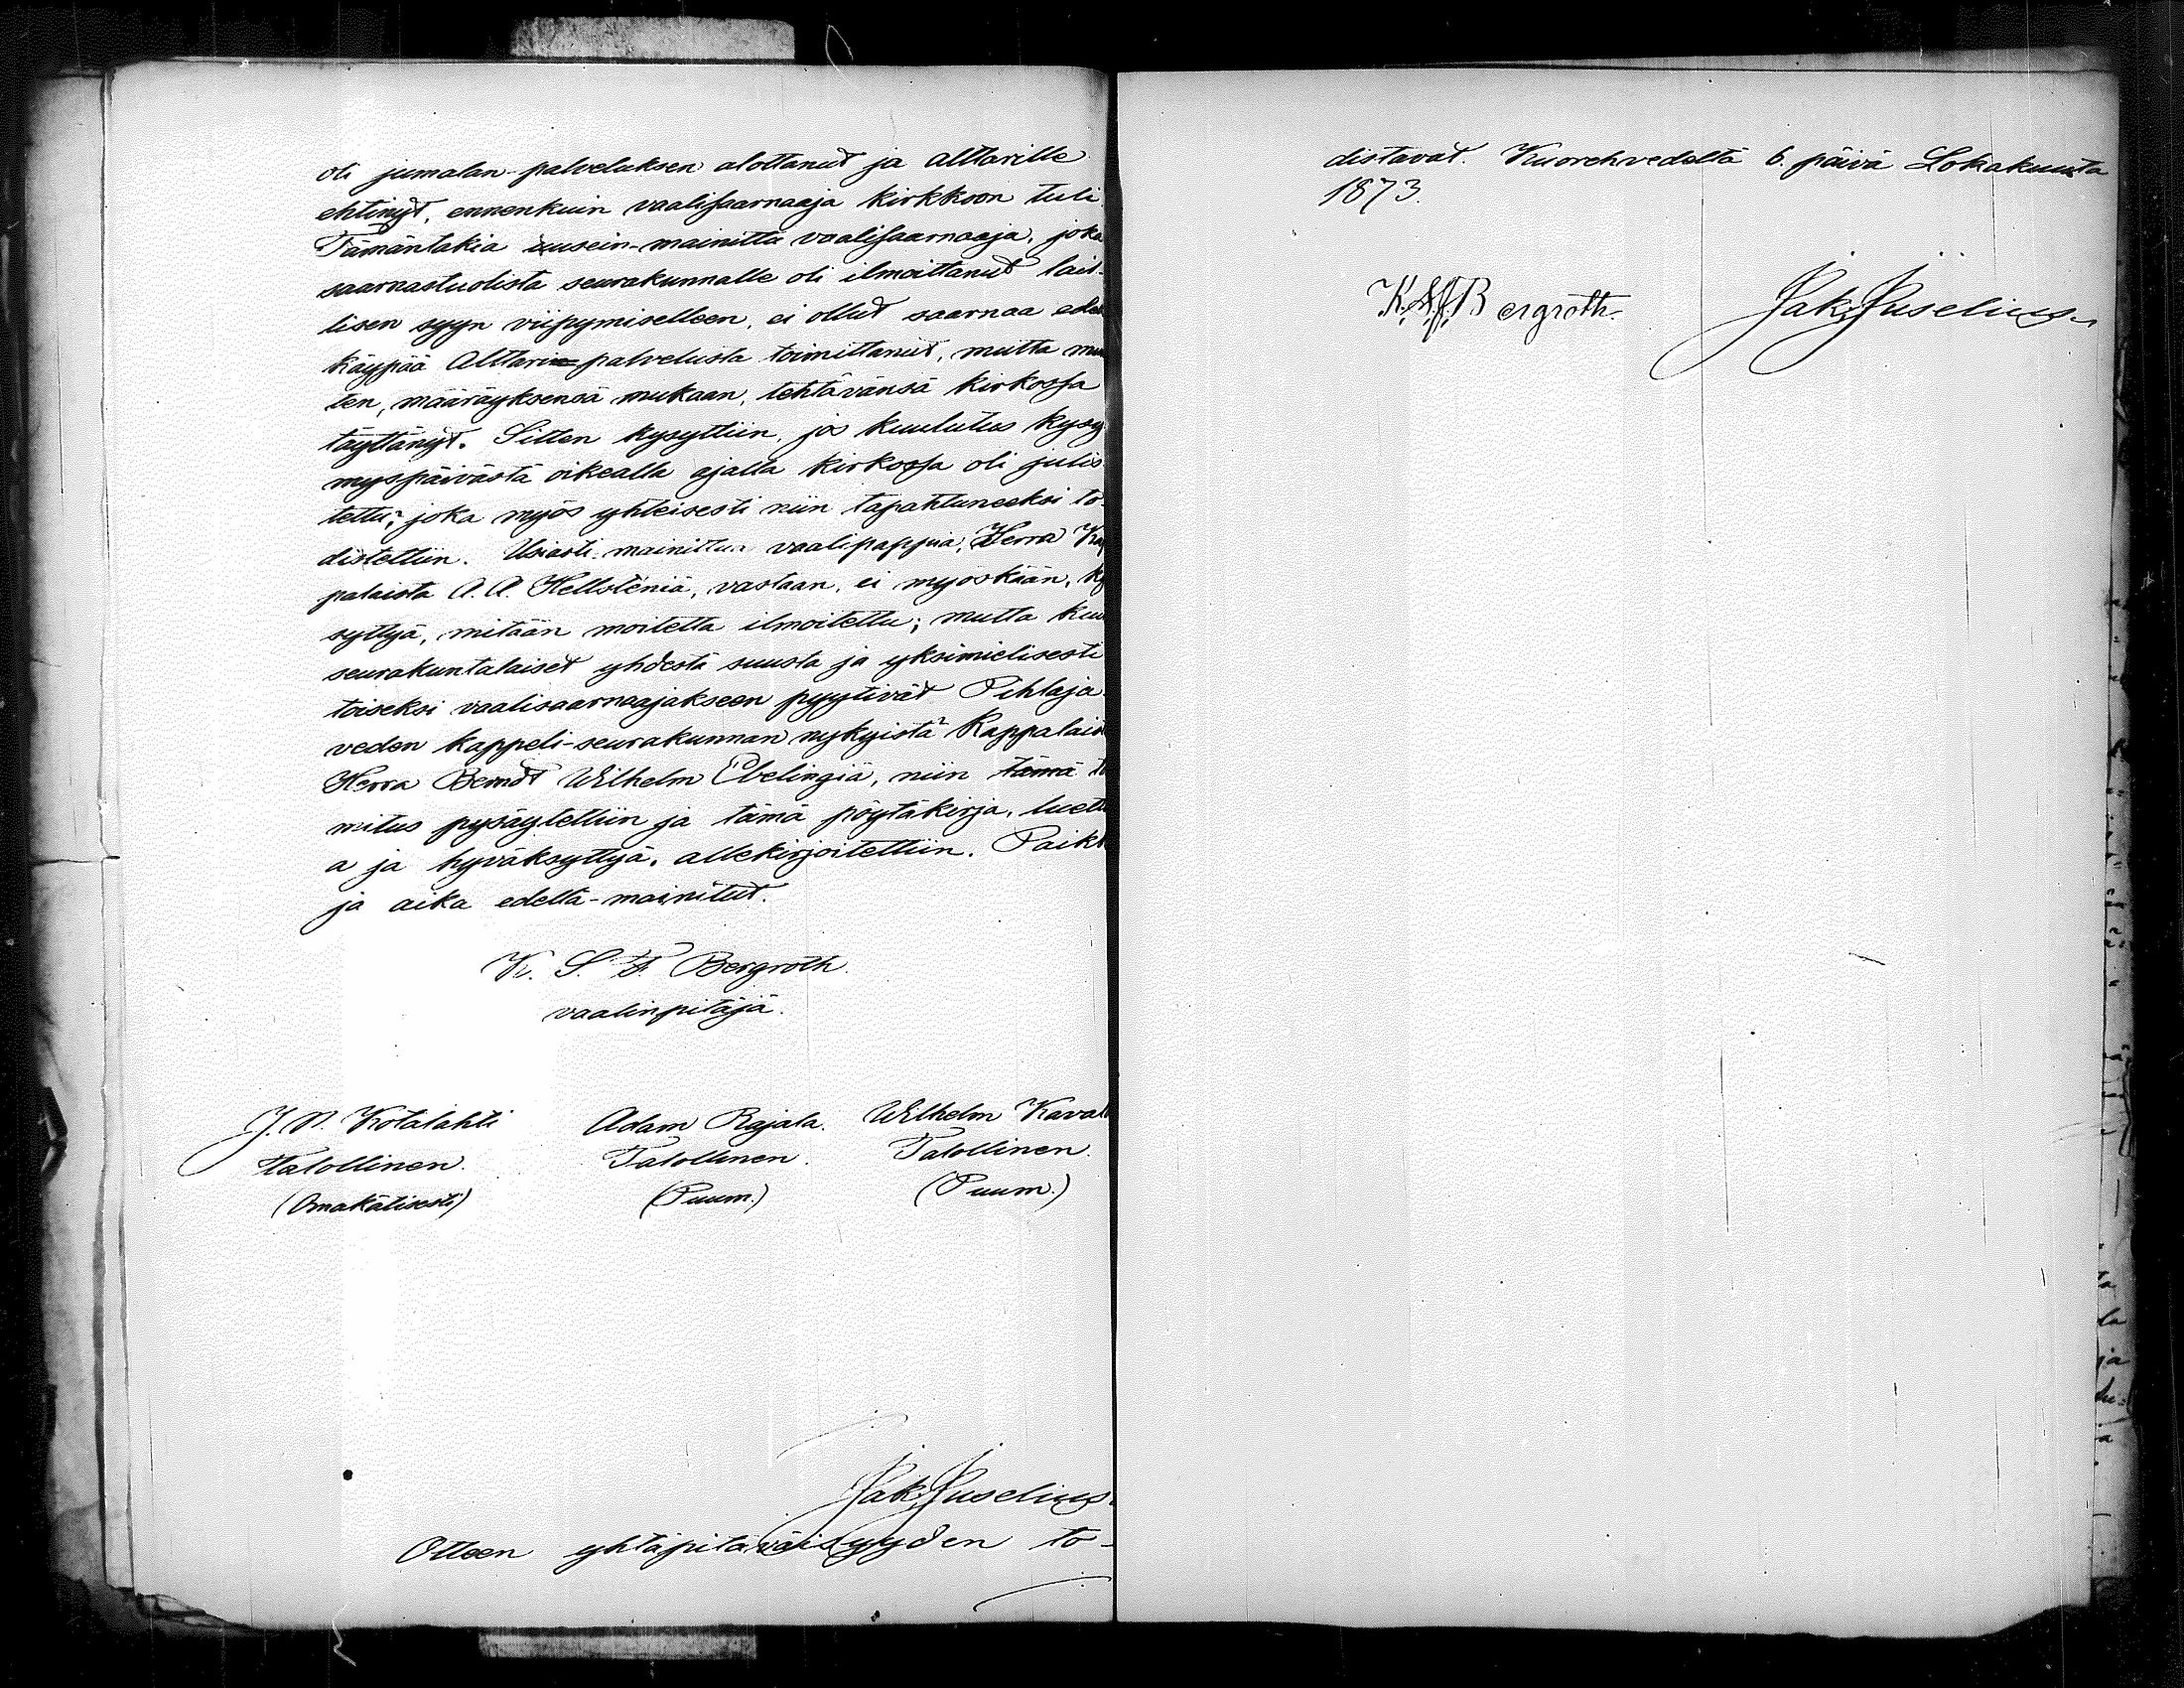 oli jumalan-palveluksen alottanut ja alttarille
ehtinyt, ennenkuin vaalisaarnaaja kirkkoon tuli.
Tämäntakia usein-mainittu vaalisaarnaaja, joka
saarnastuolista seurakunnalle oli ilmoittanut lail-
lisen syyn viipymiselleen, ei ollut saarnaa edel
käypää Alttari palvelusta toimittanut, mutta muu
ten, määräyksensä mukaan, tehtävänsä kirkossa
täyttänyt. Sitten kysyttiin, jos kuulutus kysy
myspäivästä oikealla ajalla kirkossa oli julis
tettu; joka myös yhteisesti niin tapahtuneeksi to-
distettiin. Usiasti mainittua vaalipappia, Herra Kap
palaista A. A. Hellsténiä, vastaan, ei myöskään, ky
syttyä, mitään moitetta ilmoitettu; mutta kun
seurakuntalaiset yhdestä suusta ja yksimielisesti
toiseksi vaalisaarnaajakseen pyytivät Pihlaja-
veden kappeli-seurakunnan nykyistä Kappalaist
Herra Berndt Wilhelm Ebelingiä, niin tämä to
mitus pysäytettiin ja tämä pöytäkirja, luettu
a ja hyväksyttyä, allekirjoitettiin. Paikk
ja aika edellä-mainitut.
K. S. F. Bergroth.
vaalinpitäjä.
J. N. Kotalahti Adam Rajala. Wilhelm Kaval
Talollinen. Talollinen. Talollinen.
(Omakätisesti) (Puum.) (Puum.)
Jak. Juselius.
Otteen yhtäpitäväisyyden to-
distavat. Kuorehvedeltä 6. päivä Lokakuuta
1873.
K. S. F. Bergroth. Jak. Juselius.